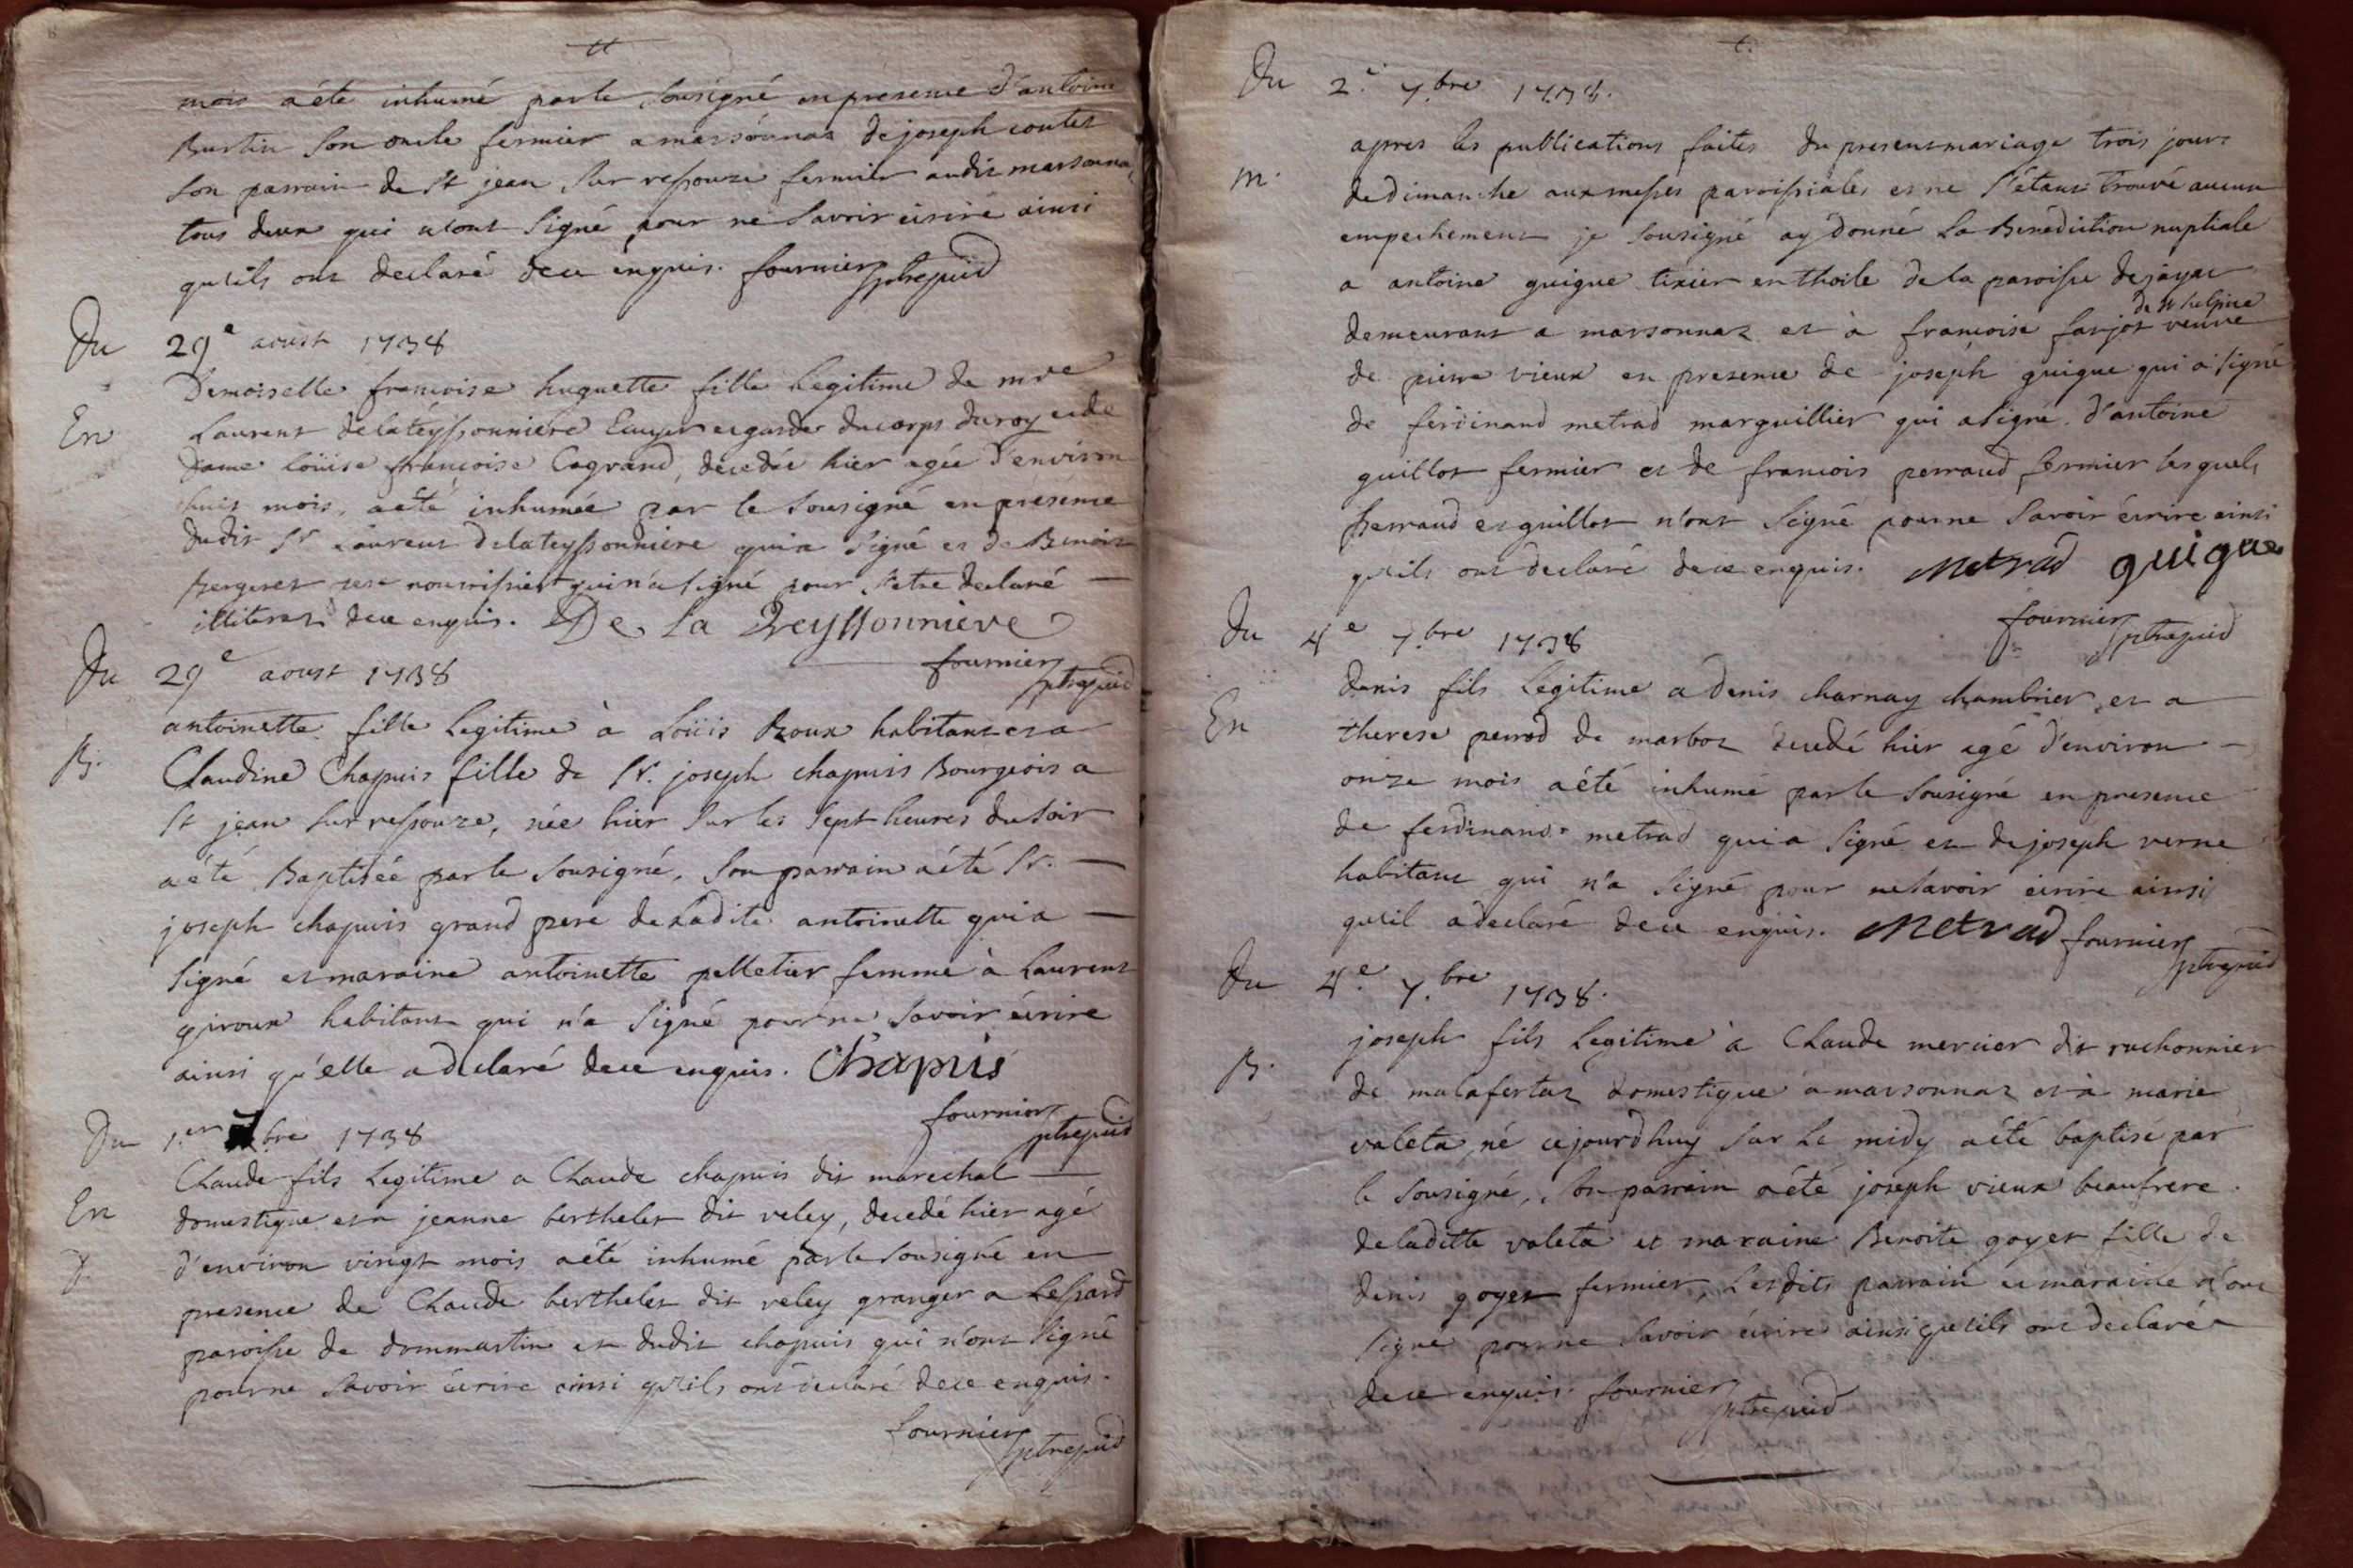 mois a été inhumé par le sousigné en presence d'antoine
Burtin son oncle fermier a marsonnaz de joseph contet
son parrain de St jean sur ressouze fermier audit marsonna
tous deux qui n'ont signé pour ne savoir écrire ainsi
qu'ils ont declaré de ce enquis. fournier ptre
Du 29e aoust 1738
Demoiselle françoise huguette fille Legitime de mre
En Laurent delateyssonniere Ecuyer et garde du corps du roy et de
Dame Loüise françoise Cagrand, decedée hier agée d'environ
huit mois, a été inhumée par le sousigné en présence
dudit Sr Laurent delateyssonniere qui a signé et de Benoit
pergeret son nourrissier qui n'a signé pour s'etre declaré
illiteré de ce enquis. De La Teyssonniere
fournier ptre
Du 29e aoust 1738
antoinette fille Legitime à Loüis Roux habitant et a
B. Claudine Chapuis fille de Sr. joseph chapuis Bourgeois a
St jean sur ressouze, née hier sur les sept heures du soir
a été Baptisée par le sousigné, son parrain a été Sr.
joseph chapuis grand pere de Ladite antoinette qui a
signé et maraine antoinette pelletier femme à Laurent
giroux habitant qui n'a signé pour ne savoir écrire
ainsi qu'elle a declaré de ce enquis. Chapuis
fournier ptre
Du 1.er 7bre 1738
Claude fils Legitime a Claude chapuis dit marechal
En domestique et a jeanne berthelet dit veley, decedé hier agé
d'environ vingt mois a été inhumé par le sousigné en
presence de Claude berthelet dit veley granger a Lessard
paroisse de dommartin et dudit chapuis qui n'ont signé
pour ne savoir écrire ainsi qu'ils ont declaré de ce enquis.
fournier ptre
Du 2.e 7.bre 1738.
apres les publications faites du present mariage trois jours
m. de dimanche aux messes paroissiales et ne s'étant trouvé aucun
empechement je sousigné ay donné La Benédiction nuptiale
a antoine guigue tixier en thoile de la paroisse de jayat
demeurant a marsonnaz et à francoise farjot veuve
de pierre vieux en presence de joseph guigue qui a signé
de ferdinand metrad marguillier qui a signé. d'antoine
guillot fermier et de francois perraud fermier lesquels
perraud et guillot n'ont signé pour ne savoir écrire ainsi
qu'ils ont declaré de ce enquis. Metrad guigue
fournier ptre
Du 4e 7.bre 1738
denis fils Legitime a denis charnay chambrier et a
En therese perrod de marboz decedé hier agé d'environ
onze mois a été inhumé par le sousigné en presence
de ferdinand metrad qui a signé et de joseph verne
habitant qui n'a signé pour ne savoir écrire ainsi
qu'il a declaré de ce enquis. Metrad fournier ptre
Du 4.e 7.bre 1738.
joseph fils Legitime à Claude mercier dit ruchonnier
B. de malafertaz domestique a marsonnaz et à marie
valeta, né cejourd'huy sur Le midy a été baptisé par
le sousigné, son parrain a été joseph vieux beaufrere
de laditte valeta et maraine Benoite goyet fille de
denis goyet fermier, Lesdits parrain et maraine n'ont
signé pour ne savoir écrire ainsi qu'ils ont declaré
de ce enquis. fournier ptre